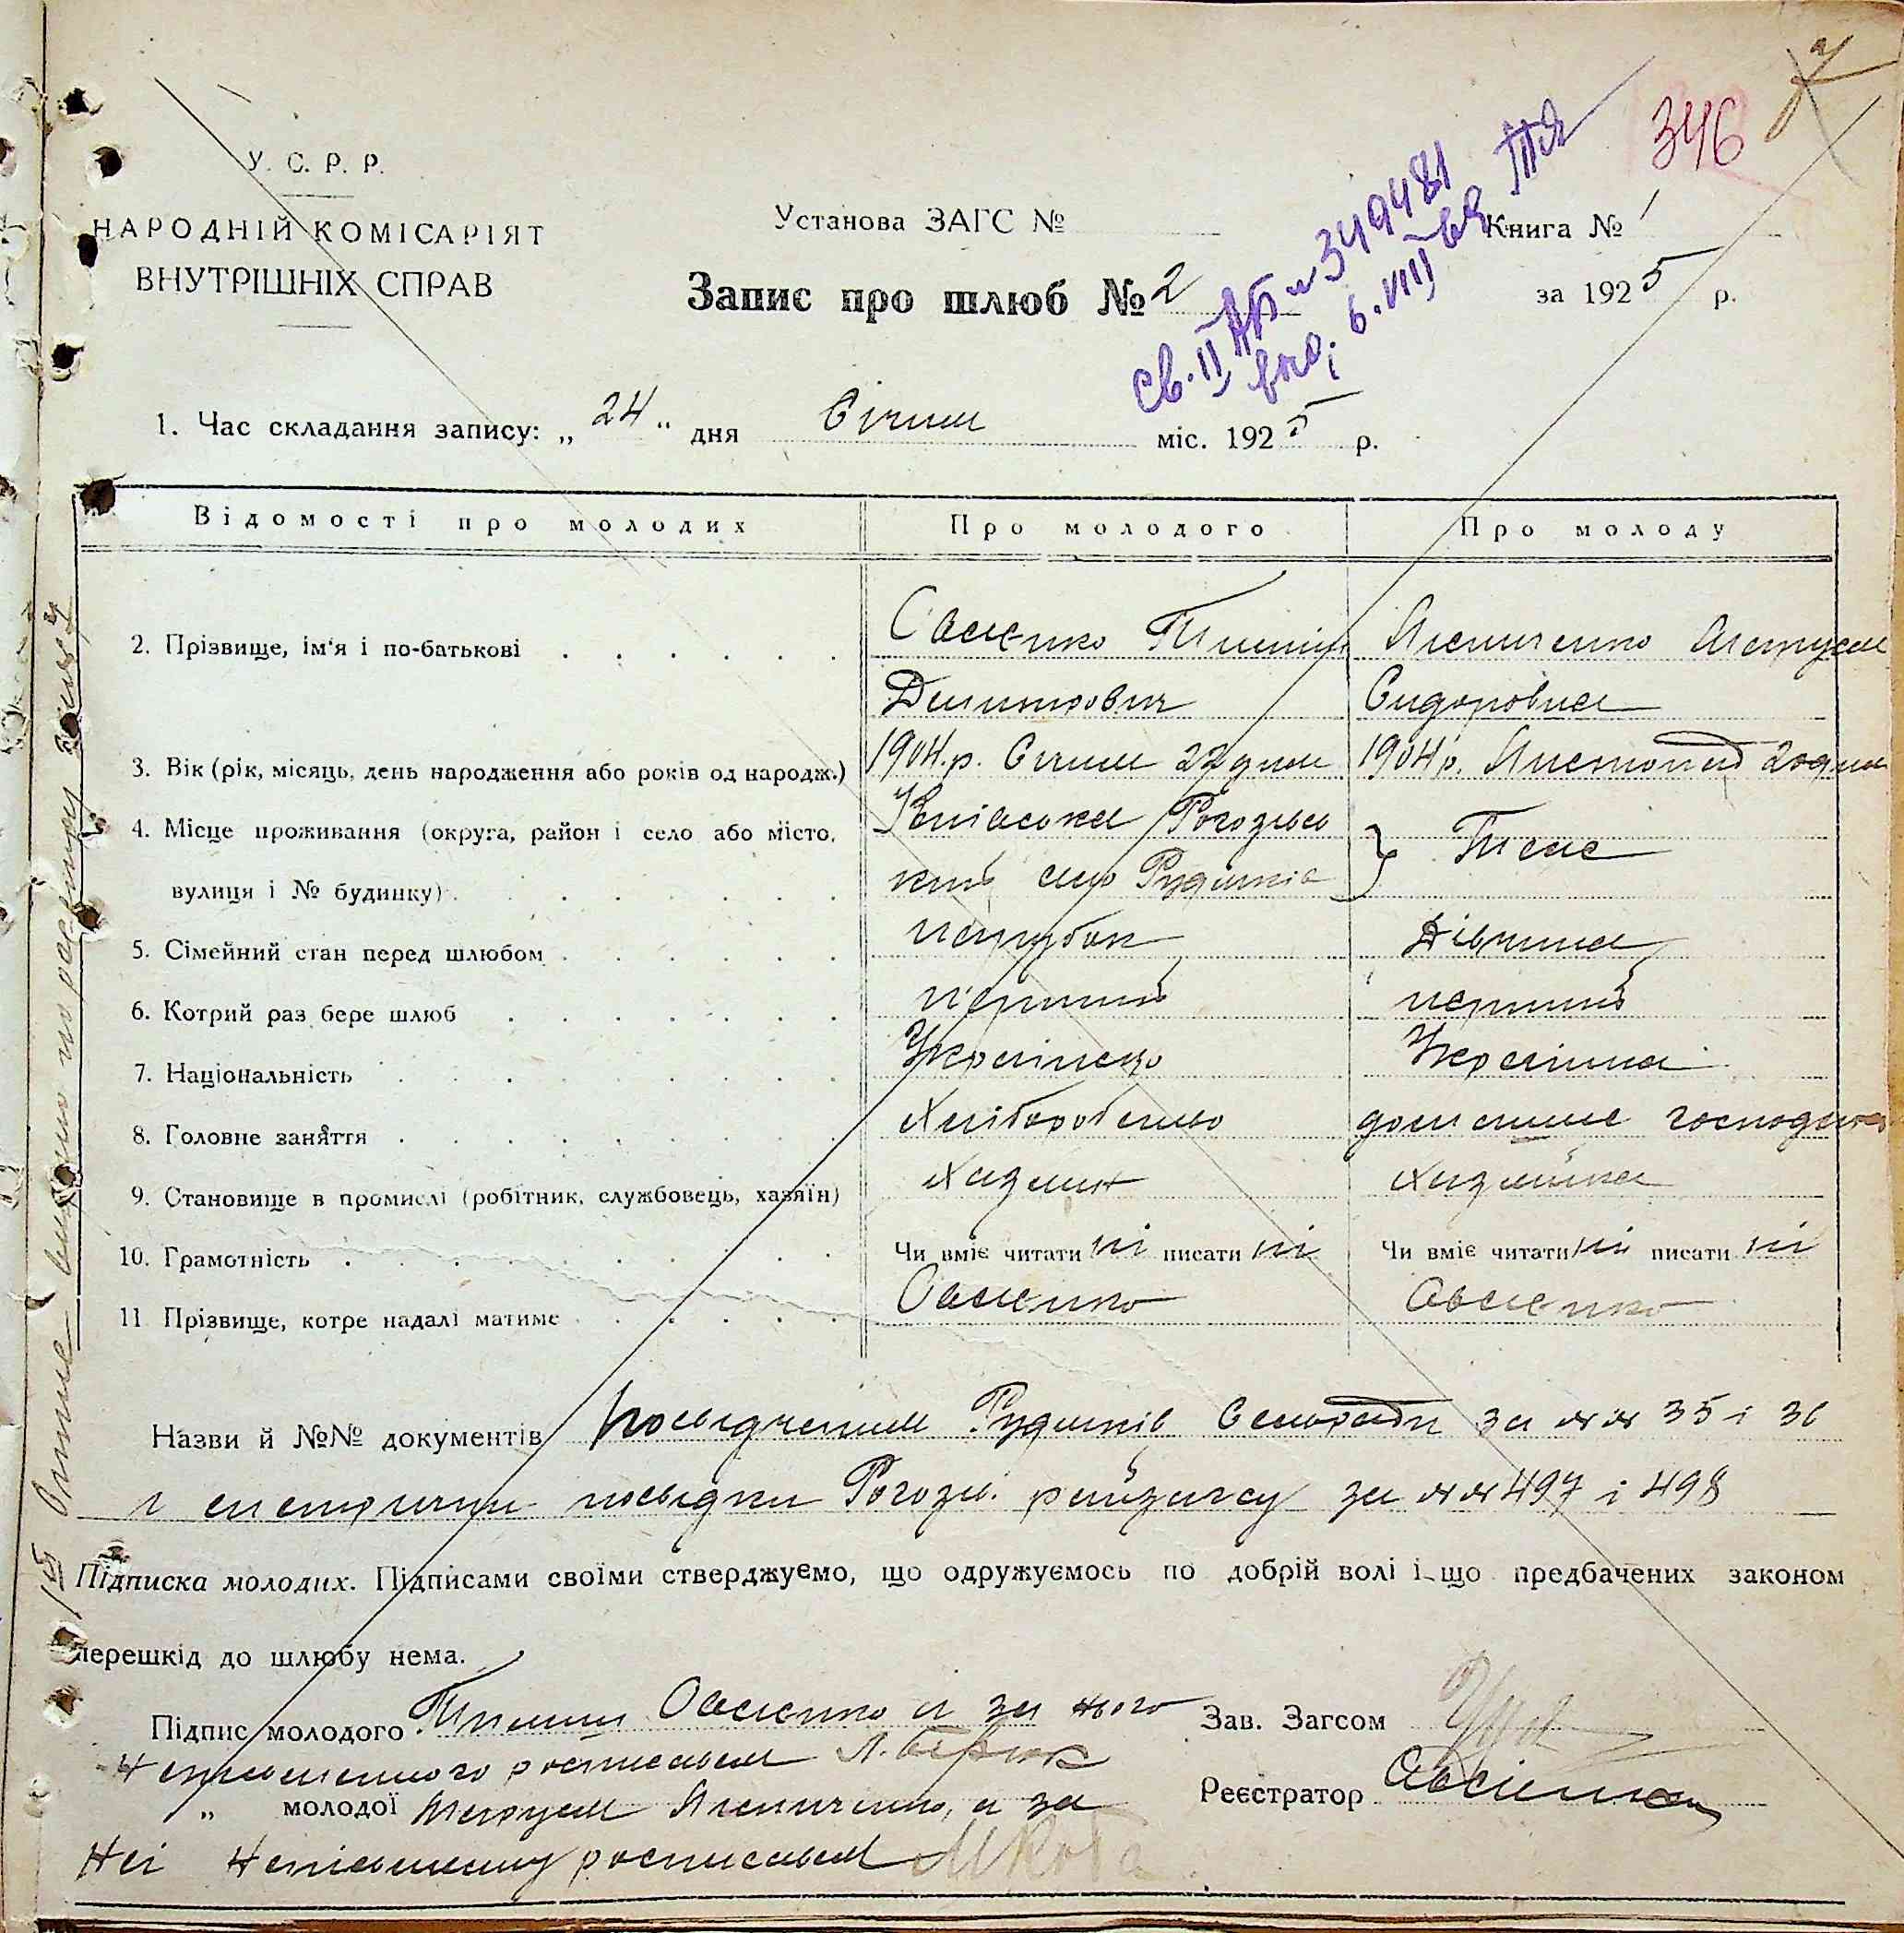 346
У. С. Р. Р.
НАРОДНІЙ КОМІСАРІЯТ
ВНУТРІШНІХ СПРАВ
Установа ЗАГС №
Книга № 1
Запис про шлюб № 2
за 1925 р.
св. II АБ № 349481
6.VIII
1. Час складання запису: „ 24 " дня Січня міс. 1925 р.
Відомості про молодих Про молодого Про молоду
2. Прізвище, ім'я і по-батькові
Овсієнко
Дмитрович Сидоровна
3. Вік (рік, місяць, день народження або років од народж.) 1904.р. Січня 22 дня 1904 р. Листопад 20 дня
4. Місце проживання (округа, район і село або місто,
вулиця і № будинку) село Рудьків Теж
5. Сімейний стан перед шлюбом парубок Дівчина
6. Котрий раз бере шлюб первий первий
7. Національність Українець Українка
8. Головне заняття Хліборобство домашне господарка
9. Становище в промислі (робітник, службовець, хазяїн) Хазяин Хазяйка
10. Грамотність Чи вміє читати ні писати ні Чи вміє читати ні писати ні
11 Прізвище, котре надалі матиме Овсієнко Овсієнко
Назви й №№ документів посвідчення Рудьків Сельради за №№ 35 і 36
і посвідки Рогозів. райзагсу за №№ 497 і 498
Підписка молодих. Підписами своїми стверджуємо, що одружуємось по добрій волі і що предбачених законом
перешкід до шлюбу нема.
Підпис молодого Овсієнко а за нього Зав. Загсом
росписався
„ молодої а за Реєстратор Овсієнко
неї росписался